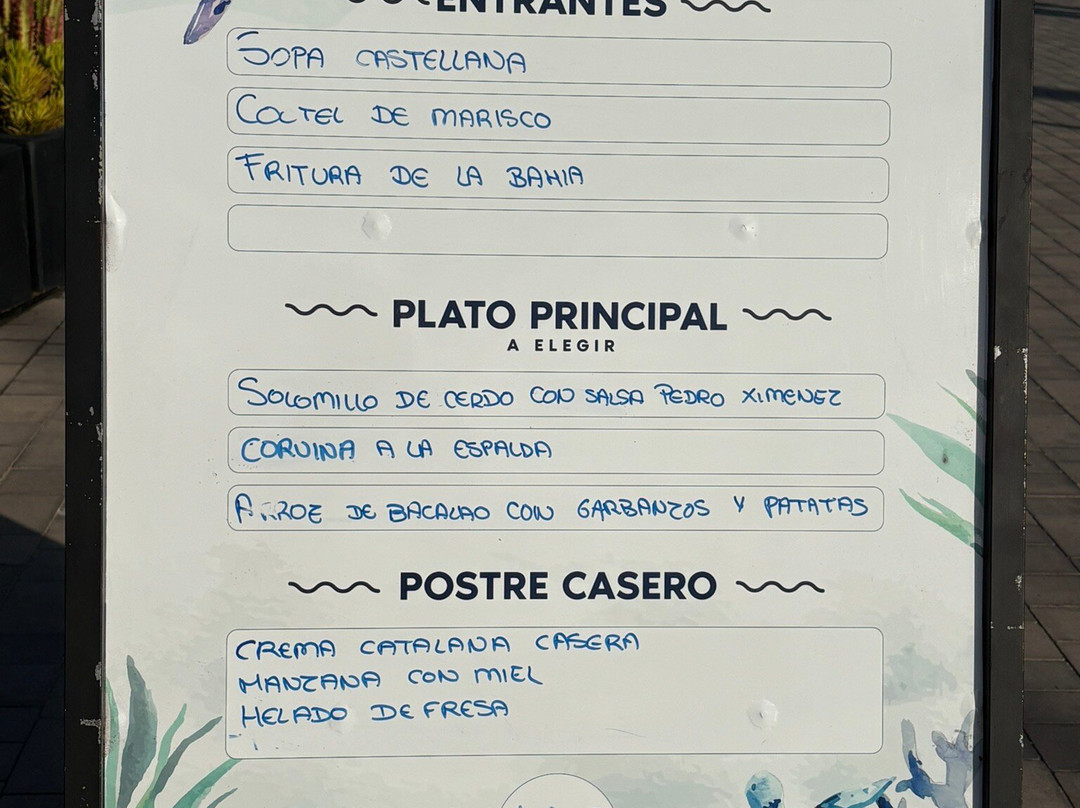 ENTRANTES
SOPA CASTELLANA
COCTEL DE MARISCO
FRITURA DE LA BAHIA
PLATO PRINCIPAL
A ELEGIR
SOLOMILLO DE CERDO CON SALSA PEDRO XIMENEZ
CORVINA A LA ESPALDA
ARROZ DE BACALAO CON GARBANZOS Y PATATAS
POSTRE CASERO
CREMA CATALANA CASERA
MANZANA CON MIEL
HELADO DE FRESA